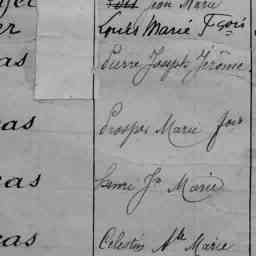 Jean Marie
er Louis Marie Fçois
as Pierre Joseph Jérôme
cas Prosper Marie Jos
cas Henri Jn Marie
cas Celestin Marie